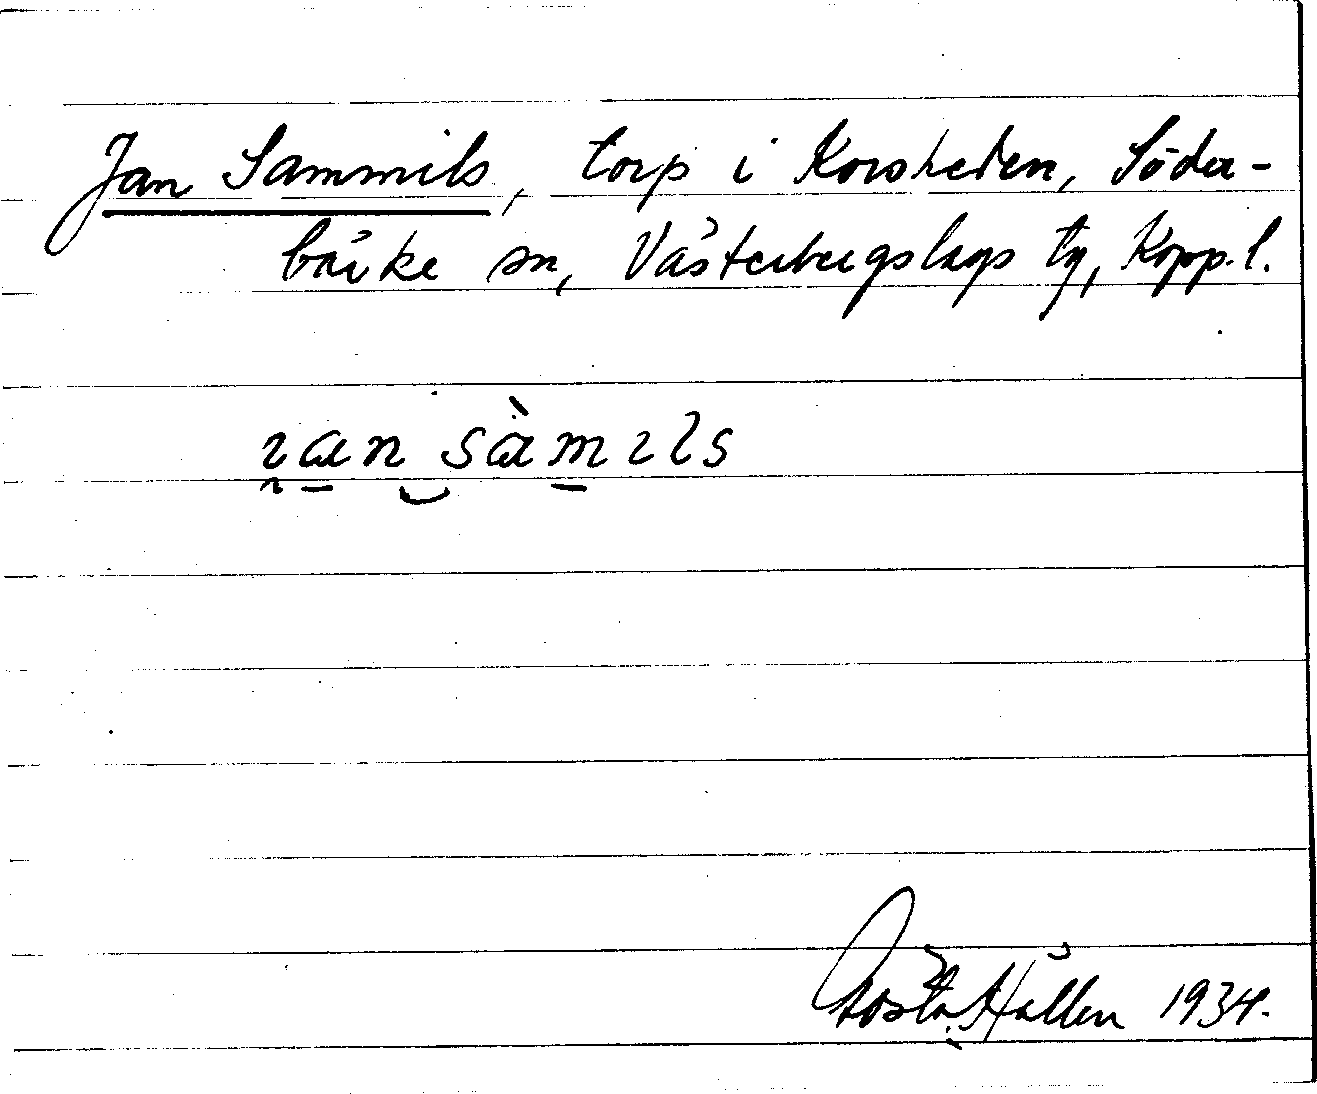 Jan Sammils, torp i Korsheden, Söder-
bärke sn, Västerbergslags tg, Kopp. l.
ɩ̯a̠n‿sàm̠ɩls
Gösta Hållen 1934.